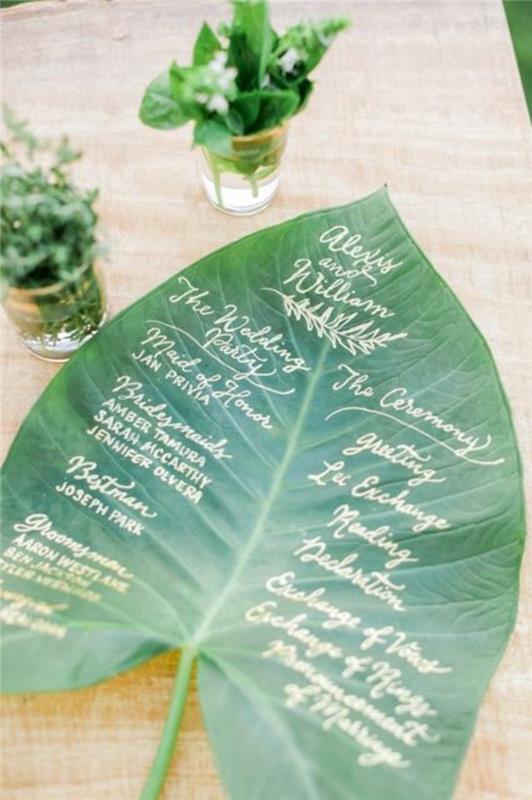 Alexis
and
William
The Wedding
Party
Maid of Honor
JAN PRIVIA
Bridesmaids
AMBER TAMURA
SARAH MCCARTHY
JENNIFER OLVERA
Bestman
JOSEPH PARK
Groomsmen
AARON WESTLAKE
BEN
TYLER
The Ceremony
Greeting
Lei Exchange
Reading
Declaration
Exchange of Vows
Exchange of Rings
Pronouncement
of Marriage